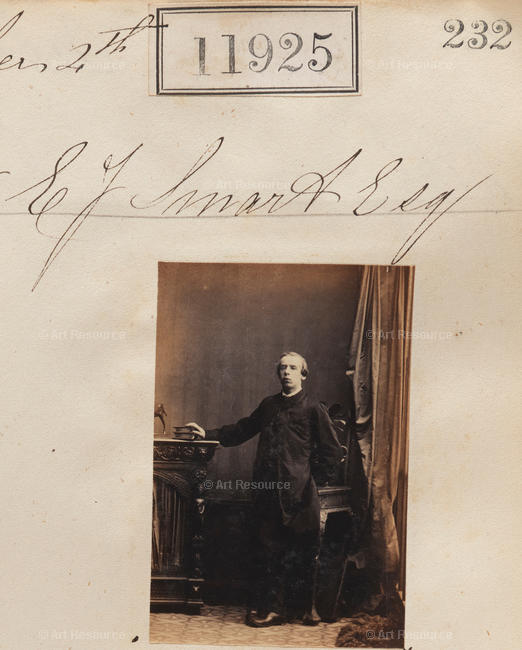 11925
232
2th
E J Smart Esq
© Art Resource
© Art Resource
© Art Resource
© Art Resource
© Art Resource
© Art Resource
© Art Resource
© Art Resource
© Art Resource